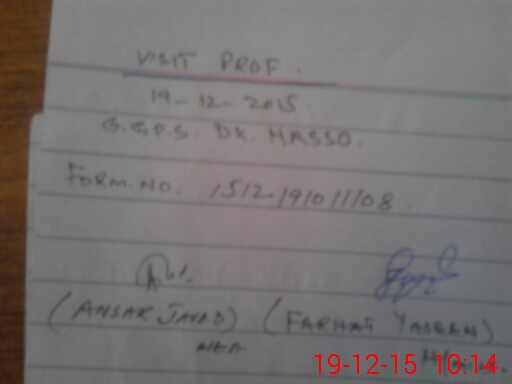 VISIT PROF.
19-12-2015.
G.G.P.S. DK. HASSO.
FORM. NO. 1512-191011108
(ANSAR JAVAD) (FARHAT YASEEN)
19-12-15 10:14